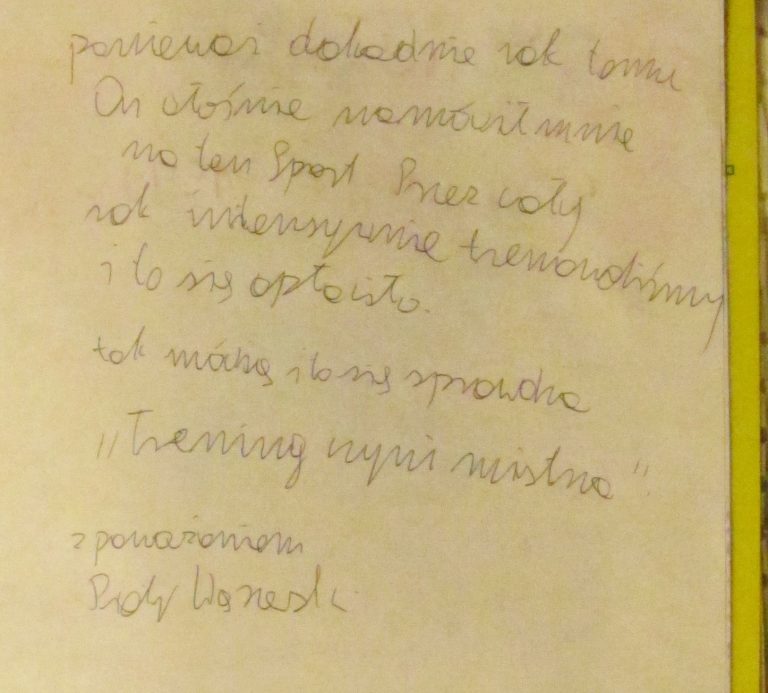 ponieważ dokadnie rok temu
On właśnie namówił mnie
na ten Sport Przez cały
rok intensywnie trenowaliśmy
i to się opłaciło.
tak mówią i to się sprawdza
„Trening czyni mistrza”
z poważaniem